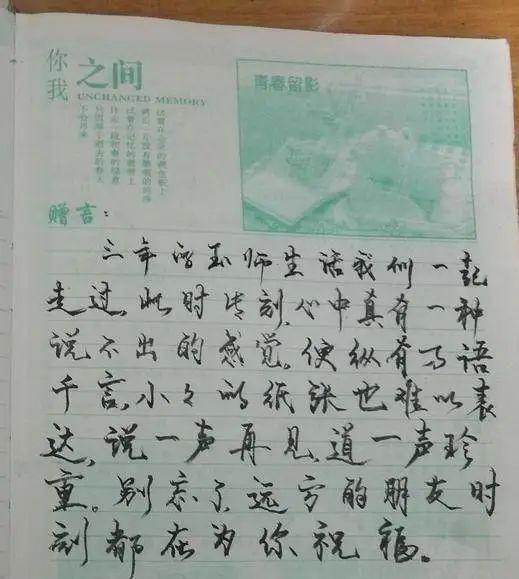 你我之间
UNCHANGED MEMORY
青春留影
赠言：
三年的玉师生活我们一起
走过，此时此刻，心中真有一种
说不出的感觉。便纵有万语
千言，小々的纸张也难以表
达，说一声再见，道一声珍
重。别忘了远方的朋友时
刻都在为你祝福。